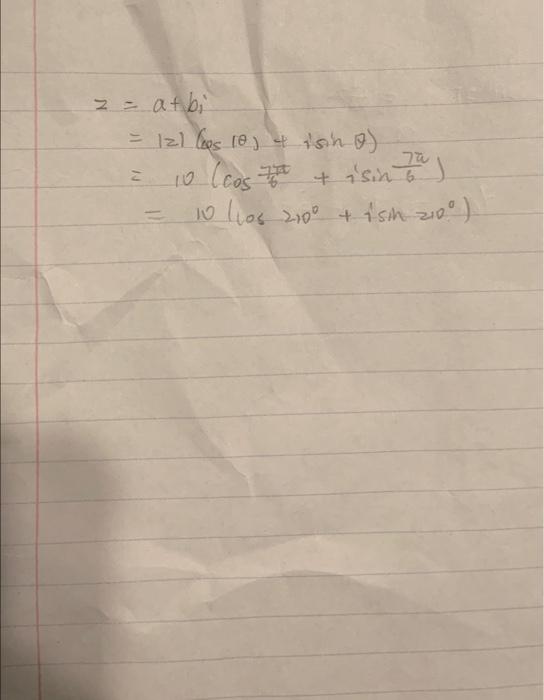 z = a+bi
= |z| (cos(θ) + i sin θ)
= 10 (cos 7π/6 + i sin 7π/6)
= 10 (cos 210° + i sin 210°)